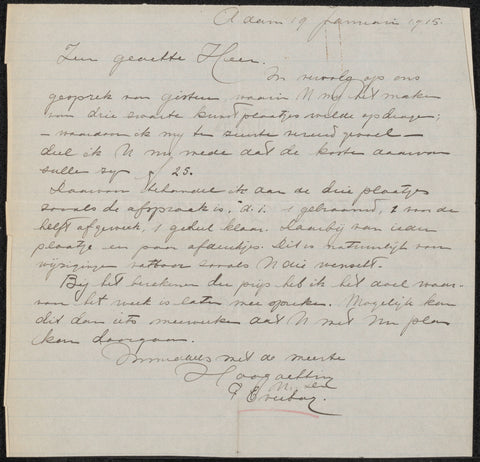 Adam 19 Januari 1915.
Zeer geachte Heer.
In vervolg op ons
gesprek van gisteren, waarin U mij het maken
van drie zwarte kunst plaatjes wilde opdragen;
– waardoor ik mij ten zeerste vereerd gevoel –
deel ik U nu mede dat de kosten daarvan
zullen zijn f 25.
Daarvan behandel ik aan de drie plaatjes
zooals de afspraak is. d.i. 1 gebraamd, 1 van de
helft afgewerkt, 1 geheel klaar. Daarbij van ieder
plaatje een paar afdrukjes. Dit is natuurlijk voor
wijzigingen vatbaar zooals U die wenscht.
Bij het berekenen der prijs heb ik het doel waar-
van het werk is laten mee spreken. Mogelijk kan
dit dan iets meewerken dat U met Uw plan
kan doorgaan.
Inmiddels met de meeste
Hoogachting